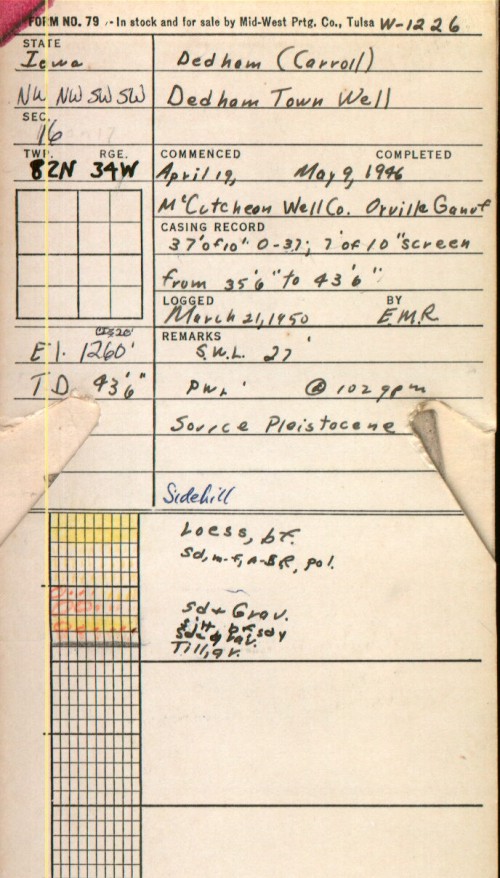 FORM NO. 79 - In stock and for sale by Mid-West Prtg. Co., Tulsa W-1226
STATE
Iowa
Dedham (Carroll)
NW NW SW SW
Dedham Town Well
SEC.
16
TWP. RGE.
82N 34W
COMMENCED COMPLETED
April 19, May 9, 1946
McCutcheon Well Co. Orville
CASING RECORD
37' of 10" 0-37; 7' of 10" screen
from 35'6" to 43'6"
LOGGED BY
March 21, 1950 E.M.R
El. 1260'
REMARKS
S.W.L. 27'
T.D. 43'6"
P.W.L. ' @ 102 gpm
Source Pleistocene
Sidehill
Loess, br.
Sd, m-f, A-SR, pol.
Sd + Grav.
Till, gr.